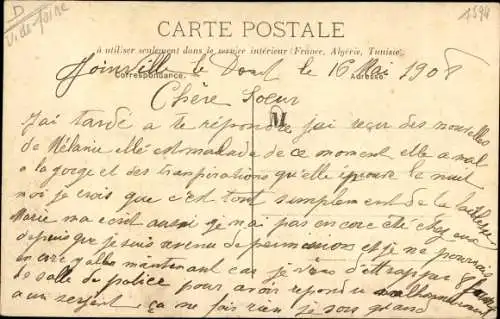 D
Vide-foire
1594
CARTE POSTALE
à utiliser seulement dans le service intérieur (France, Algérie, Tunisie).
Joinville le Pont le 16 Mai 1908
Correspondance. Adresse
Chère Soeur
M
J'ai tardé a te répondre j'ai reçu des nouvelles
de Mélanie elle est malade de ce moment elle a mal
a la gorge et des transpirations qu'elle éprouve la nuit
moi je crois que c'est tout simplement de la
Marie ma ecrit aussi je nai pas encore eté chez eux
depuis que je suis revenu de permission et je ne pourrais
encore y aller maintenant car je viens d'attrapper 8 jours
de salle de police pour avoir repondu malheureusement
a un sergent, ça ne fais rien je suis grand